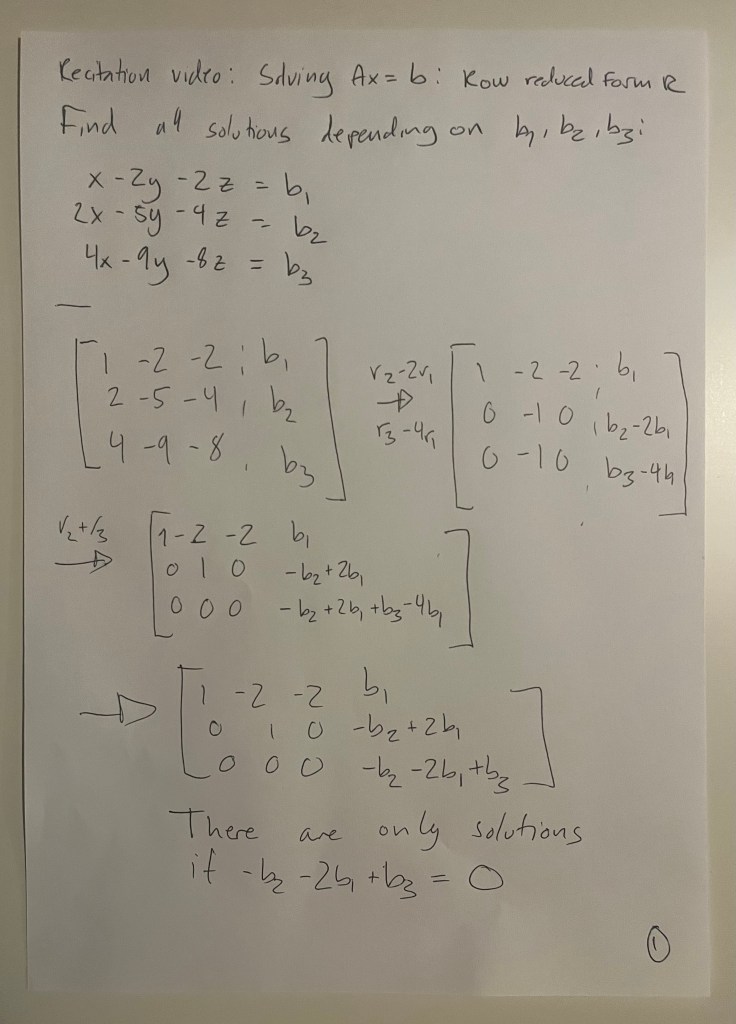 Recitation video: Solving Ax = b: Row reduced form R
Find all solutions depending on b₁, b₂, b₃:
x - 2y - 2z = b₁
2x - 5y - 4z = b₂
4x - 9y - 8z = b₃
—
[1 -2 -2 ¦ b₁]
[2 -5 -4 ¦ b₂]
[4 -9 -8 ¦ b₃]
r₂-2r₁
→
r₃-4r₁
[1 -2 -2 ¦ b₁]
[0 -1 0 ¦ b₂-2b₁]
[0 -1 0 ¦ b₃-4b₁]
r₂+r₃
→
[1 -2 -2 b₁]
[0 1 0 -b₂+2b₁]
[0 0 0 -b₂+2b₁+b₃-4b₁]
→
[1 -2 -2 b₁]
[0 1 0 -b₂+2b₁]
[0 0 0 -b₂-2b₁+b₃]
There are only solutions
if -b₂ -2b₁ +b₃ = 0
①